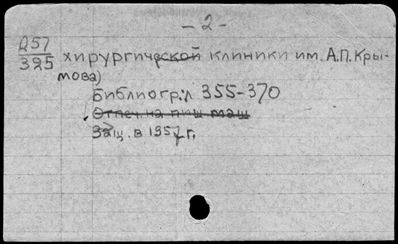 - 2 -
Д57 хирургической клиники им. А.П. Кры-
325 мова)
Библиогр.: л 355-370
Отпеч. на пиш. маш
Защ. в 1957 г.